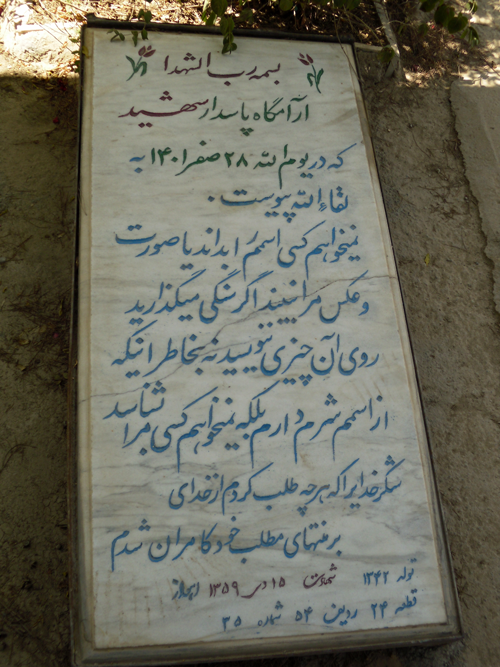 بسمه رب الشهدا
آرامگاه پاسدار شهید
که در یوم الله ۲۸ صفر ۱۴۰۱ به
لقاءالله پیوست.
نمیخواهم کسی اسمم را بداند یا صورت
و عکس مرا ببیند اگر سنگی میگذارید
روی آن چیزی ننویسید نه بخاطر اینکه
از اسمم شرم دارم بلکه نمیخواهم کسی مرا شناسد
شکر خدایرا که هر چه طلب کردم از خدای
بر منتهای مطلب خود کامران شدم
تولد ۱۳۴۲ شهادت ۱۵ دی ۱۳۵۹ اهواز
قطعه ۲۴ ردیف ۵۴ شماره ۳۵